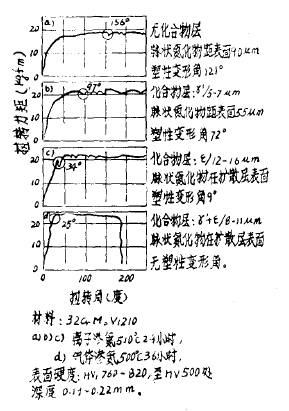 a)
156°
无化合物层
脉状氮化物距表面90μm
塑性变形角121°
b)
97°
化合物层:γ'/5-7μm
脉状氮化物距表面55μm
塑性变形角72°
c)
34°
化合物层:ε/12-16μm
脉状氮化物在扩散层表面
塑性变形角9°
d)
25°
化合物层:γ'+ε/8-11μm
脉状氮化物在扩散层表面
无塑性变形角。
扭转力矩(kgfm)
20
10
0
20
10
0
20
10
0
20
10
0
0
100
200
300
扭转角(度)
材料:32CrMoV1210
a)b)c)离子渗氮510℃24小时,
d)气体渗氮500℃36小时,
表面硬度:HV,760-820,至HV500处
深度0.19-0.22mm。